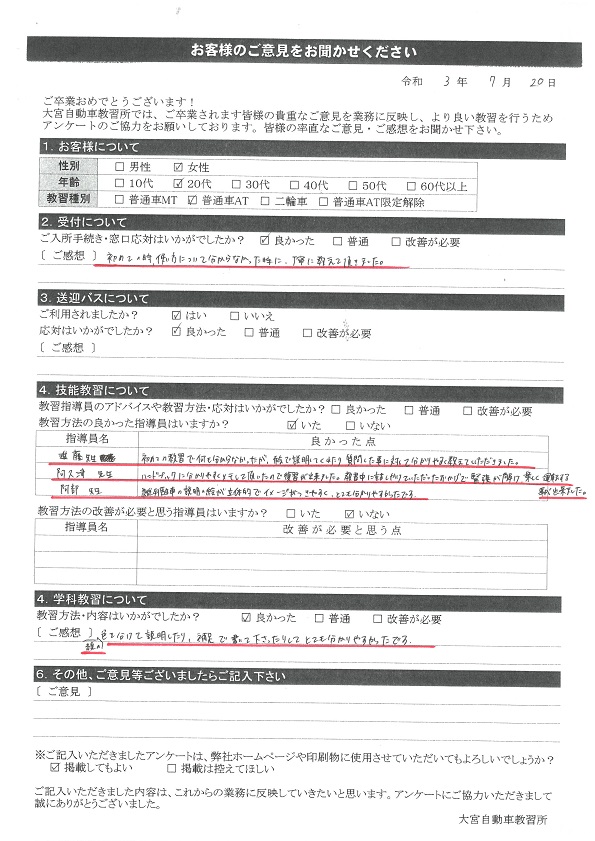 お客様のご意見をお聞かせください
令和 3年 7月 20日
ご卒業おめでとうございます！
大宮自動車教習所では、ご卒業されます皆様の貴重なご意見を業務に反映し、より良い教習を行うため
アンケートのご協力をお願いしております。皆様の率直なご意見・ご感想をお聞かせ下さい。
1. お客様について
性別 □ 男性 ☑ 女性
年齢 □ 10代 ☑ 20代 □ 30代 □ 40代 □ 50代 □ 60代以上
教習種別 □ 普通車MT ☑ 普通車AT □ 二輪車 □ 普通車AT限定解除
2. 受付について
ご入所手続き・窓口応対はいかがでしたか？ ☑ 良かった □ 普通 □ 改善が必要
〔 ご感想 〕 初めての時、使い方について分からなかった時に、丁寧に教えて頂きました。
3. 送迎バスについて
ご利用されましたか？ ☑ はい □ いいえ
応対はいかがでしたか？ ☑ 良かった □ 普通 □ 改善が必要
〔 ご感想 〕
4. 技能教習について
教習指導員のアドバイスや教習方法・応対はいかがでしたか？ □ 良かった □ 普通 □ 改善が必要
教習方法の良かった指導員はいますか？ ☑ いた □ いない
指導員名 良かった点
遠藤 先生 初めての教習で何も分からなかったが、 説明してくれたり質問した事に対して分かりやすく教えていただきました。
阿久津 先生 ハンドブックに分かりやすくメモして頂いたので復習が出来ました。教習中に話しかけていただいたおかげで緊張が解け 楽しく運転する
事が出来ました。
阿部 先生 の説明の絵が立体的でイメージがつきやすく、とても分かりやすかったです。
教習方法の改善が必要と思う指導員はいますか？ □ いた ☑ いない
指導員名 改善が必要と思う点
4. 学科教習について
教習方法・内容はいかがでしたか？ ☑ 良かった □ 普通 □ 改善が必要
〔 ご感想 〕 色を分けて説明したり、 補足で書いて下さったりして とても分かりやすかったです。
6. その他、ご意見等ございましたらご記入下さい
〔 ご意見 〕
※ご記入いただきましたアンケートは、弊社ホームページや印刷物に使用させていただいてもよろしいでしょうか？
☑ 掲載してもよい □ 掲載は控えてほしい
ご記入いただきました内容は、これからの業務に反映していきたいと思います。アンケートにご協力いただきまして
誠にありがとうございました。
大宮自動車教習所